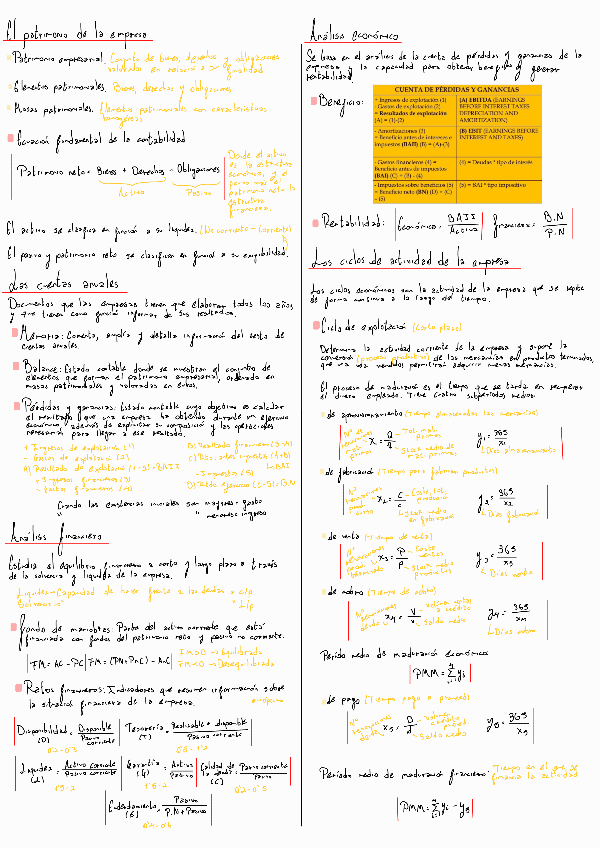 El patrimonio de la empresa
Patrimonio empresarial: Conjunto de bienes, derechos y obligaciones
valorados en euros
Elementos patrimoniales: Bienes, derechos y obligaciones
Masas patrimoniales: Elementos patrimoniales con características
homogéneas
Ecuación fundamental de la contabilidad
Patrimonio neto = Bienes + Derechos - Obligaciones
Activo Pasivo
Donde el activo
es la estructura
económica, y el
pasivo más el
patrimonio neto la
estructura
financiera.
El activo se clasifica en función a su liquidez. (No corriente - Corriente)
El pasivo y patrimonio neto se clasifican en función a su exigibilidad.
Las cuentas anuales
Documentos que las empresas tienen que elaborar todos los años
y que tienen como función informar de sus resultados.
Memoria: Comenta, amplía y detalla información del resto de
cuentas anuales.
Balance: Estado contable donde se muestran el conjunto de
elementos que forman el patrimonio empresarial, ordenado en
masas patrimoniales y valoradas en euros.
Pérdidas y ganancias: Estado contable cuyo objetivo es calcular
el resultado que una empresa ha obtenido durante un ejercicio
económico, además de explicitar su composición y las operaciones
necesarias para llegar a ese resultado.
+ Ingresos de explotación (1)
- Gastos de explotación (2)
A) Resultado de explotación (1-2): BAII
+ Ingresos financieros (3)
- Gastos financieros (4)
B) Resultado financiero (3-4)
C) Rdo. antes impuestos (A+B)
BAI
- Impuestos (5)
D) Rtdo ejercicio (C-5): B.N
Cuando las existencias iniciales son mayores = gasto
" " menores = ingreso
Análisis financiero
Estudia el equilibrio financiero a corto y largo plazo a través
de la solvencia y liquidez de la empresa.
Liquidez = Capacidad de hacer frente a las deudas a c/p
Solvencia = " " L/p
Fondo de maniobra: Parte del activo corriente que está
financiada con fondos del patrimonio neto y pasivo no corriente.
FM = AC - PC FM = (PN + PNC) - ANC
FM>0 → Equilibrada
FM<0 → Desequilibrada
Ratios financieros: Indicadores que resumen información sobre
la situación financiera de la empresa. = óptimo
Disponibilidad (D) = Disponible / Pasivo corriente
Tesorería (T) = Realizable + disponible / Pasivo corriente
Liquidez (L) = Activo corriente / Pasivo corriente
Garantía (G) = Activo / Pasivo
Calidad de la deuda (C) = Pasivo corriente / Pasivo
Endeudamiento (E) = Pasivo / P.N + Pasivo
Análisis económico
Se basa en el análisis de la cuenta de pérdidas y ganancias de la
empresa y la capacidad para obtener beneficios y generar
rentabilidad.
Beneficio:
CUENTA DE PÉRDIDAS Y GANANCIAS
+ Ingresos de explotación (1)
- Gastos de explotación (2)
= Resultados de explotación
(A) = (1)-(2)
(A) EBITDA (EARNINGS
BEFORE INTEREST TAXES
DEPRECIATION AND
AMORTIZATION)
- Amortizaciones (3)
= Beneficio antes de intereses e
impuestos (BAII) (B) = (A)-(3)
(B) EBIT (EARNINGS BEFORE
INTEREST AND TAXES)
- Gastos financieros (4) =
Beneficio antes de impuestos
(BAI) (C) = (B) - (4)
(4) = Deudas * tipo de interés
- Impuestos sobre beneficios (5)
= Beneficio neto (BN) (D) = (C)
- (5)
(5) = BAI * tipo impositivo
Rentabilidad: Económica = BAII / Activo financiera = B.N / P.N
Los ciclos de actividad de la empresa
Los ciclos económicos son la actividad de la empresa que se repite
de forma continua a lo largo del tiempo.
Ciclo de explotación (Corto plazo)
Determina la actividad corriente de la empresa y supone la
conversión (proceso productivo) de las mercancías en productos terminados,
que una vez vendidos permitirá adquirir nuevas mercancías.
El periodo de maduración es el tiempo que se tarda en recuperar
el dinero empleado. Tiene cuatro subperiodos medios:
de aprovisionamiento (Tiempo almacenadas las mercancías)
y1 = 365 / x1
Días almacenamiento
de fabricación (Tiempo para fabricar productos)
y2 = 365 / x2
Días fabricar
de venta (Tiempo de venta)
y3 = 365 / x3
Días venta
de cobro (Tiempo de cobro)
y4 = 365 / x4
Días cobro
Periodo medio de maduración económico
de pago (Tiempo pago a proveed)
y5 = 365 / x5
Periodo medio de maduración financiero: Tiempo en el que se
financia la actividad